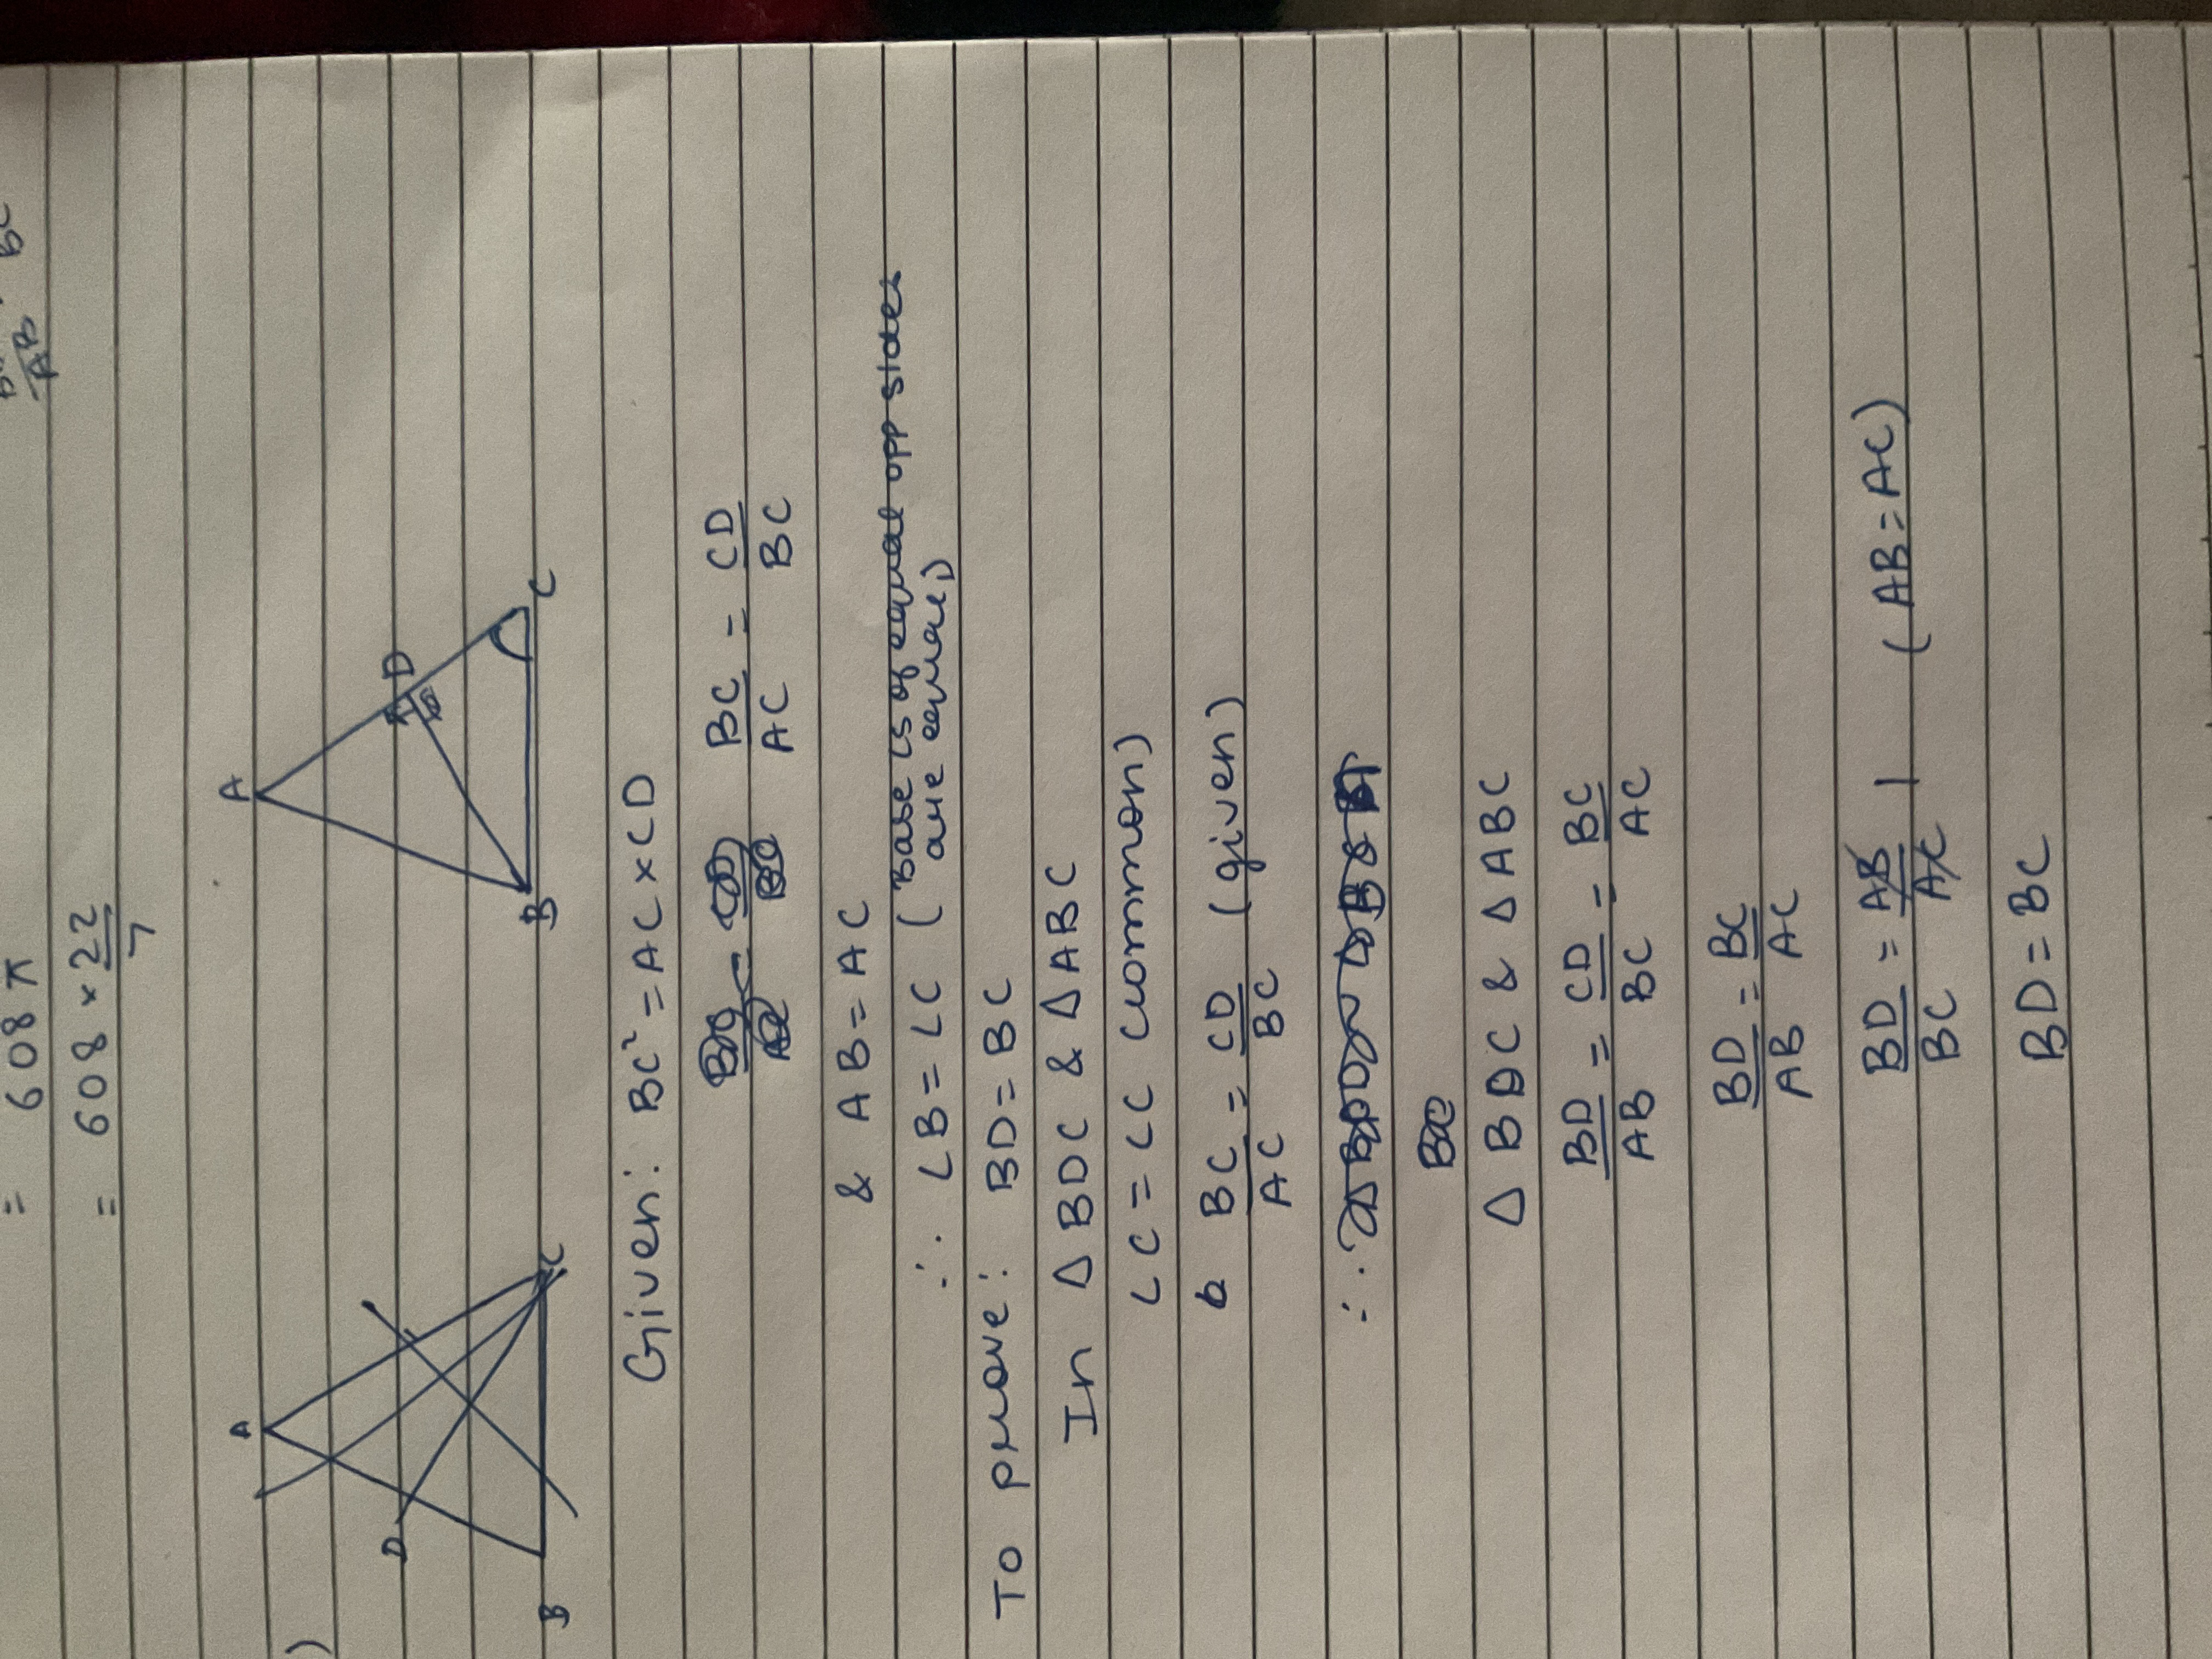 = 608 π
= 608 × 22/7
)
A
D
B
C
A
D
B
C
Given: BC² = AC × CD
BC/AC = CD/BC
& AB = AC
∴ ∠B = ∠C (Base ∠s of equal opp sides
are equal)
To prove: BD = BC
In △ BDC & △ ABC
∠C = ∠C (common)
BC/AC = CD/BC (given)
∴
△ BDC & △ ABC
BD/AB = CD/BC = BC/AC
BD/AB = BC/AC
BD/BC = AB/AC 1 (AB = AC)
BD = BC